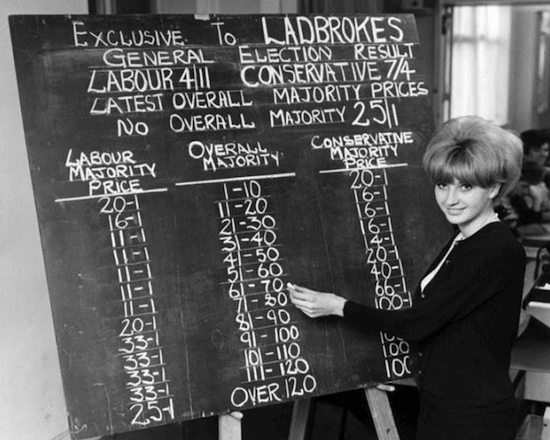 EXCLUSIVE TO LADBROKES
GENERAL ELECTION RESULT
LABOUR 4/11 CONSERVATIVE 7/4
LATEST OVERALL MAJORITY PRICES
NO OVERALL MAJORITY 25/1
LABOUR
MAJORITY
PRICE
20-1
16-1
11-1
11-1
11-1
11-1
11-1
20-1
33-1
33-1
33-1
33-1
25-1
OVERALL
MAJORITY
1-10
11-20
21-30
31-40
41-50
51-60
61-70
71-80
81-90
91-100
101-110
111-120
OVER 120
CONSERVATIVE
MAJORITY
PRICE
20-1
16-1
16-1
16-1
14-1
20-1
40-1
66-1
100-1
100
100
100